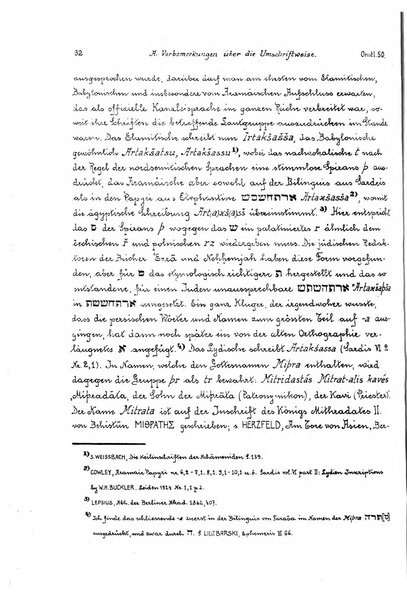 32 A. Vorbemerkungen über die Umschriftweise. Or.ill.50
ausgesprochen wurde, darüber darf man am ehesten vom Elamitischen,
Babylonischen und insbesondere vom Aramäischen Aufschluss erwarten,
das als officielle Kanzleisprache im ganzen Reiche verbreitet war, so-
weit ihre Schriften die betreffende Lautgruppe auszudrücken im Stande
waren. Das Elamitische schreibt nun Irtakšašša, das Babylonische
gewöhnlich Artakšatsu, Artakšassu¹⁾, wobei das nachvokalische t nach
der Regel der nordsemitischen Sprachen eine stimmlose Spirans þ aus-
drückt, das Aramäische aber sowohl auf der Bilinguis aus Sardeis
als in den Papyri aus Elephantine ארתחשסש Artaxšasša²⁾, womit
die ägyptische Schreibung Art(a)xš(a)sš übereinstimmt.³⁾ Hier entspricht
das ס der Spirans þ wogegen das ש ein palatisiertes r ähnlich dem
čechischen ř und polnischen rz wiedergeben muss. Die jüdischen Redak-
toren der Bücher Ezrā und Nəhhemjah haben diese Form vorgefun-
den, aber für ס das etymologisch richtigere ת hergestellt und das so
entstandene, für einen Juden unaussprechbare ארתחשתש *Artaxšaþša
in ארתחששת umgesetzt. Ein ganz Kluger, der irgendwoher wusste,
dass die persischen Wörter und Namen zum grössten Teil auf -a aus-
gingen, hat dann noch später ein von der alten Orthographie ver-
läugnetes א angefügt.⁴⁾ Das Lydische schreibt Artakšassa (Sardis VI 2
Nr. 2,1). In Namen, welche den Gottesnamen Miþra enthalten, wird
dagegen die Gruppe þr als tr bewahrt: Mitridastás Mitrat-alis kavés
„Miþradāta, der Sohn der Miþrāta (Patronymikon), der Kavi (Priester)."
Der Name Mitrata ist auf der Inschrift des Königs Mithradates II.
von Behistūn ΜΙΘΡΑΤΗΣ geschrieben; s. HERZFELD, Am Tore von Asien, Ber-
1) S. WEISSBACH, Die Keilinschriften der Achämeniden S. 139.
2) COWLEY, Aramaic Papyri nr. 6,2 - 7,1. 8,1. 9,1 - 10,1 u. ö. Sardis vol. VI part II: Lydian Inscriptions
by W. H. BUCKLER. Leiden 1924 Nr. 1, 1 p. 2.
3) LEPSIUS, Abh. der Berliner Akad. 1862, 40?.
4) Ich finde das schliessende -a zuerst in der Bilinguis von Faraša im Namen der Miþra
ausgedrückt, und zwar durch ה. S. LIDZBARSKI, Ephemeris II 66.